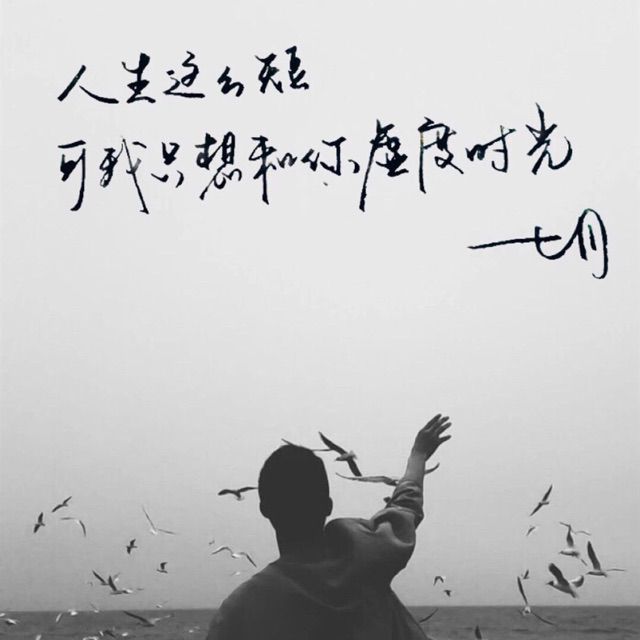 人生这么短
可我只想和你虚度时光
七月